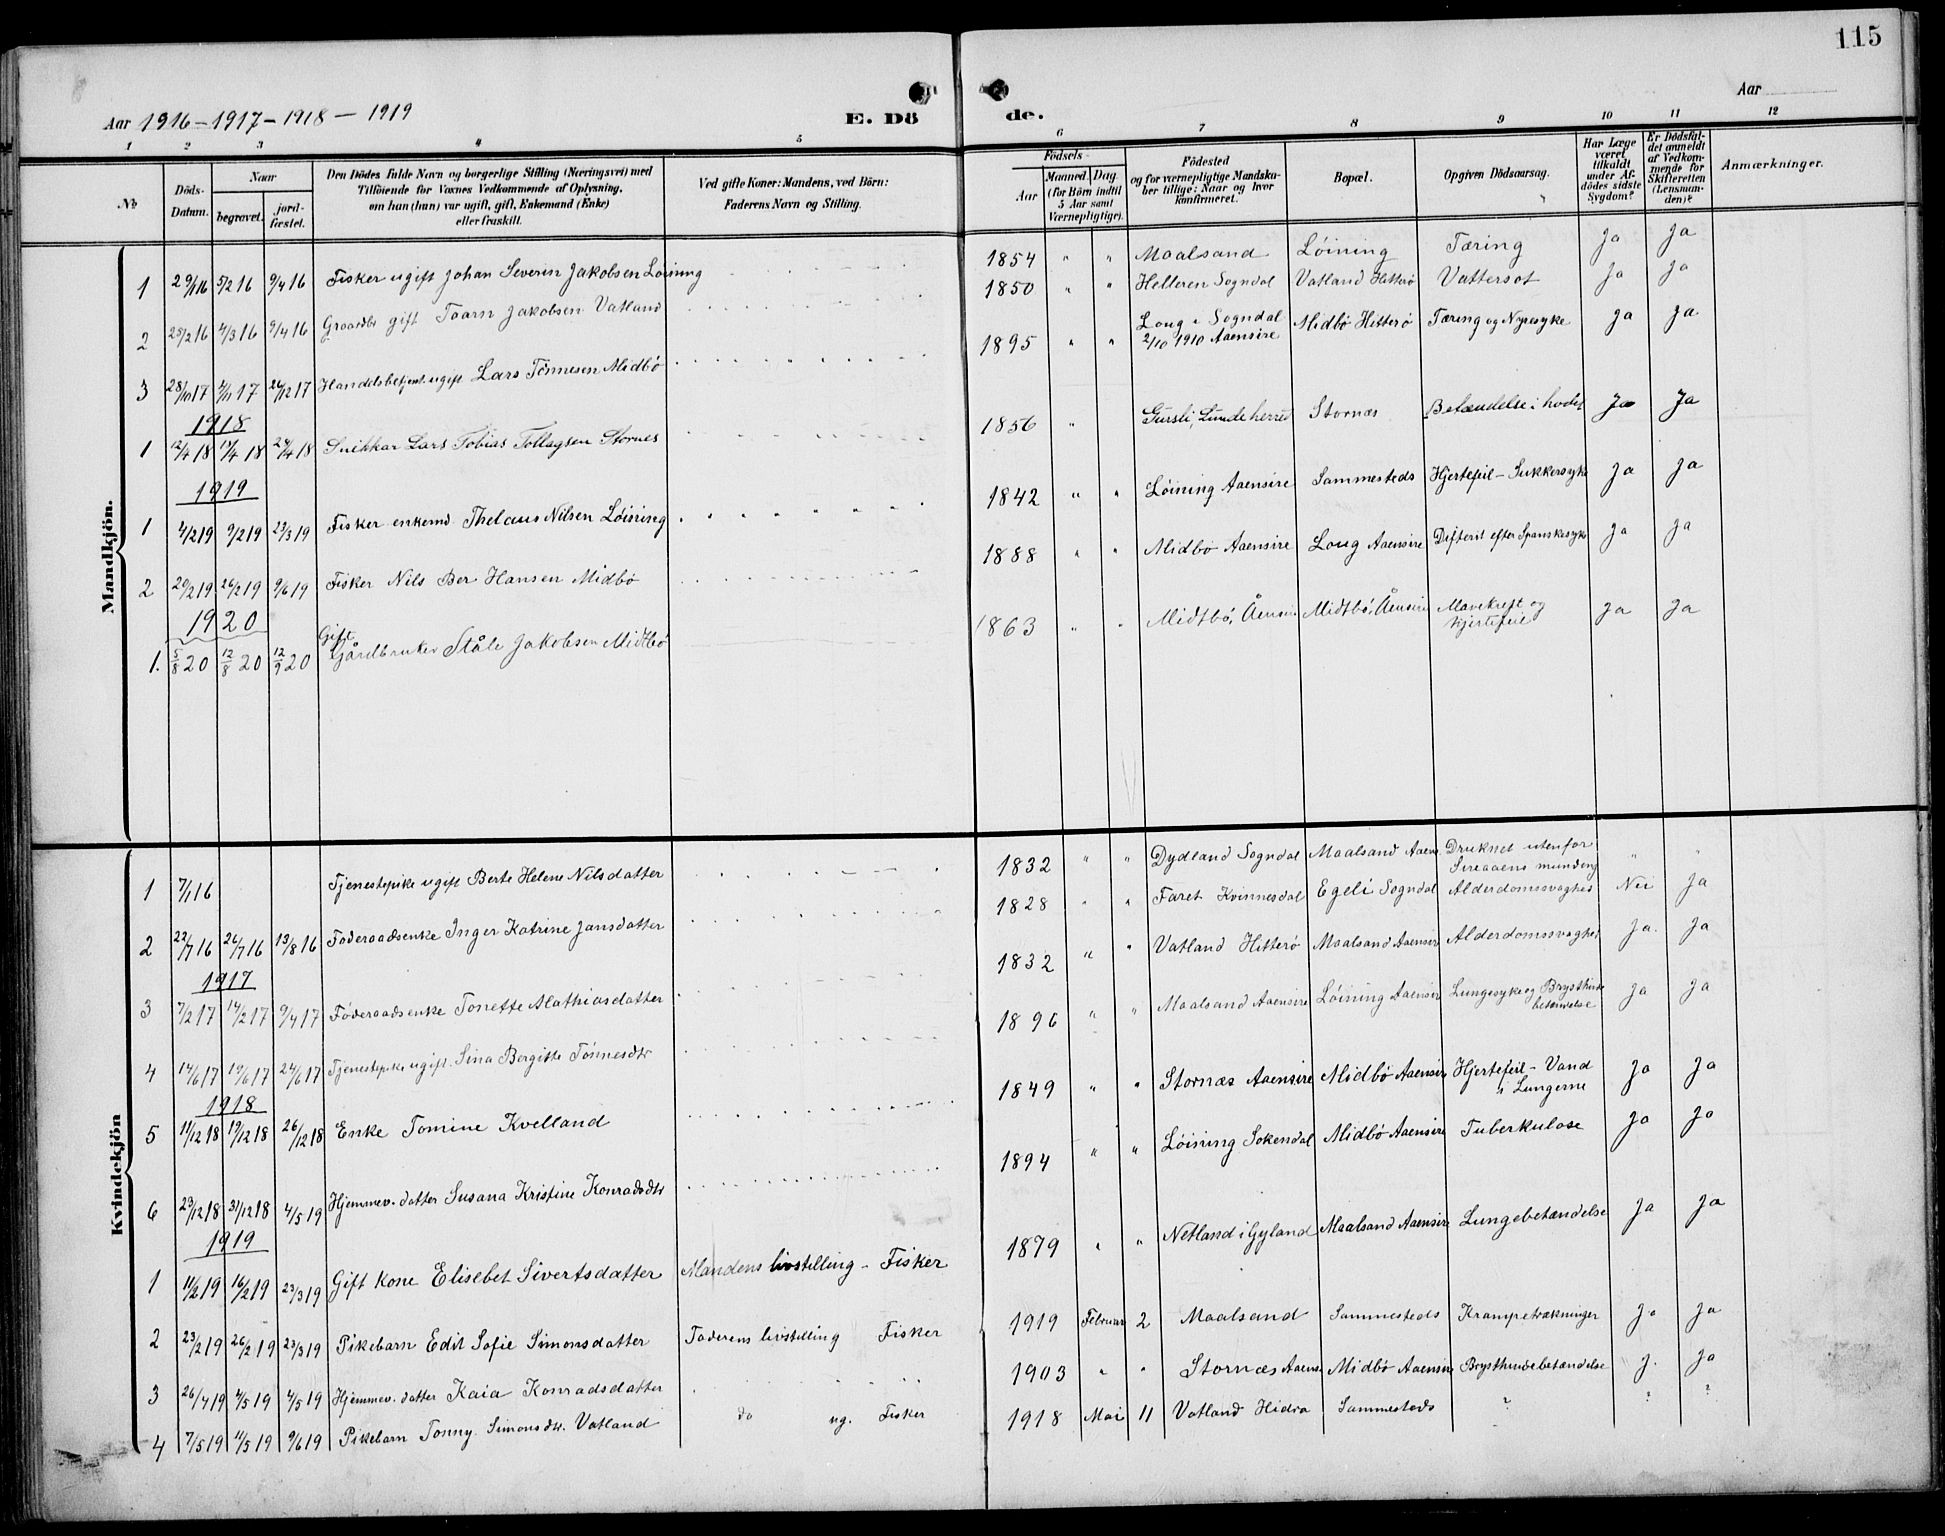 115
Aar 1916 – 1917 – 1918 – 1919
E. Dö
de.
Aar
1 2 3 4 5 6 7 8 9 10 11 12
No
Döds-Datum.
Naar
begravet.
jord-fæstet.
Den Dödes fulde Navn og borgerlige Stilling (Næringsvei) med
Tilföiende for Voxnes Vedkommende af Oplysning,
om han (hun) var ugift, gift, Enkemand (Enke)
eller fraskilt.
Ved gifte Koner: Mandens, ved Börn:
Faderens Navn og Stilling.
Födsels-
Aar
Maaned. Dag.
(for Börn indtil
5 Aar samt
Værnepligtige).
Födested
og for værnepligtige Mandska-
ber tillige: Naar og hvor
konfirmeret.
Bopæl.
Opgiven Dödsaarsag.
Har Læge
været
tilkaldt
under Af-
dödes sidste
Sygdom?
Er Dödsfal-
det anmeldt
af Vedkom-
mende for
Skifteretten
(Lensman-
den)?
Anmærkninger.
Mandkjön.
1 29/1 16 5/2 16 9/4 16 Fisker ugift Johan Severin Jakobsen Löining 1854 " " Maalsand Löining Tæring Ja Ja
2 25/2 16 4/3 16 9/4 16 Graardbr gift Taarn Jakobsen Vatland 1850 " " Helleren Sogndal Vatland Hitterö Vattersot Ja Ja
3 28/10 17 4/11 17 26/12 17 Handelsbetjent ugift Lars Tönnesen Midbö 1895 " " Loug i Sogndal Midbö Hitterö Tæring og Nyresyke Ja Ja
2/10 1910 Aaensire
1918
1 12/4 18 17/4 18 24/4 18 Snikkar Lars Tobias Tollagsen Stornes 1856 " Gursli, Lunde herred Stornæs Betændelse i hodet Ja Ja
1919
1 4/2 19 9/2 19 23/3 19 Fisker enkemd. Thelaus Nilsen Löining 1842 " " Löining Aaensire Sammesteds Hjertefeil – Sukkersyke Ja Ja
2 20/2 19 26/2 19 9/6 19 Fisker Nils Ber Hansen Midbö 1888 " " Midbö Aaensire Loug Aaensire Difterit efter Spanskesyke Ja Ja
1920
1. 5/8 20 12/8 20 12/9 20 Gift Gårdbruker Ståle Jakobsen Midtbö 1863 " " Midtbö, Åensire Midtbö, Åensire Mavekreft og
hjertefeil Ja Ja
Kvindekjön
1 7/1 16 Tjenestepike ugift Berte Helene Nilsdatter 1832 " " Dydland Sogndal Maalsand Aaens. Druknet utenfor
Sireaaens munding " "
2 22/7 16 26/7 16 13/8 16 Föderaadsenke Inger Katrine Jansdatter 1828 " " Faret Kvinnesdal Egeli Sogndal Alderdomssvaghed Nei Ja
1917
3 7/2 17 14/2 17 9/4 17 Föderaadsenke Tonette Mathiasdatter 1832 " " Vatland Hitterö Maalsand Aaensir Alderdomssvaghet Ja. Ja
4 14/6 17 19/6 17 24/6 17 Tjenestepike ugift. Sina Bergitte Tönnesdtr 1896 " " Maalsand Aaensire Löining Aaensir Lungesyke og Brysthinde
betændelse Ja Ja
1918
5 11/12 18 19/12 18 26/12 18 Enke Tomine Kvelland 1849 " " Stornæs Aaensire Midbö Aaensire Hjertefeil – Vand
i Lungerne Ja Ja
6 23/12 18 31/12 18 4/5 19 Hjemmev. datter Susana Kristine Konradsdtr 1894 " " Löining Sokendal Midbö Aaensire Tuberkulose Ja Ja
1919
1 11/2 19 16/2 19 23/3 19 Gift Kone Elisebet Sivertsdatter Mandens livstilling – Fisker 1879 " " Netland i Gyland Maalsand Aaensire Lungebetændelse Ja Ja
2 23/2 19 26/2 19 23/3 19 Pikebarn Edit Sofie Simonsdatter Faderens livstilling Fisker 1919 Februar 2 Maalsand Sammesteds Krampetrækninger Ja Ja
3 26/4 19 4/5 19 4/5 19 Hjemmev. datter Kaia Konradsdatter 1903 " " Stornæs Aaens. Midbö Aaensire Brysthindebetændelse J. Ja
4 7/5 19 11/5 19 9/6 19 Pikebarn Tonny Simonsdtr. Vatland do ug. Fisker 1918 Mai 11 Vatland Hidra Sammesteds ? ? ?